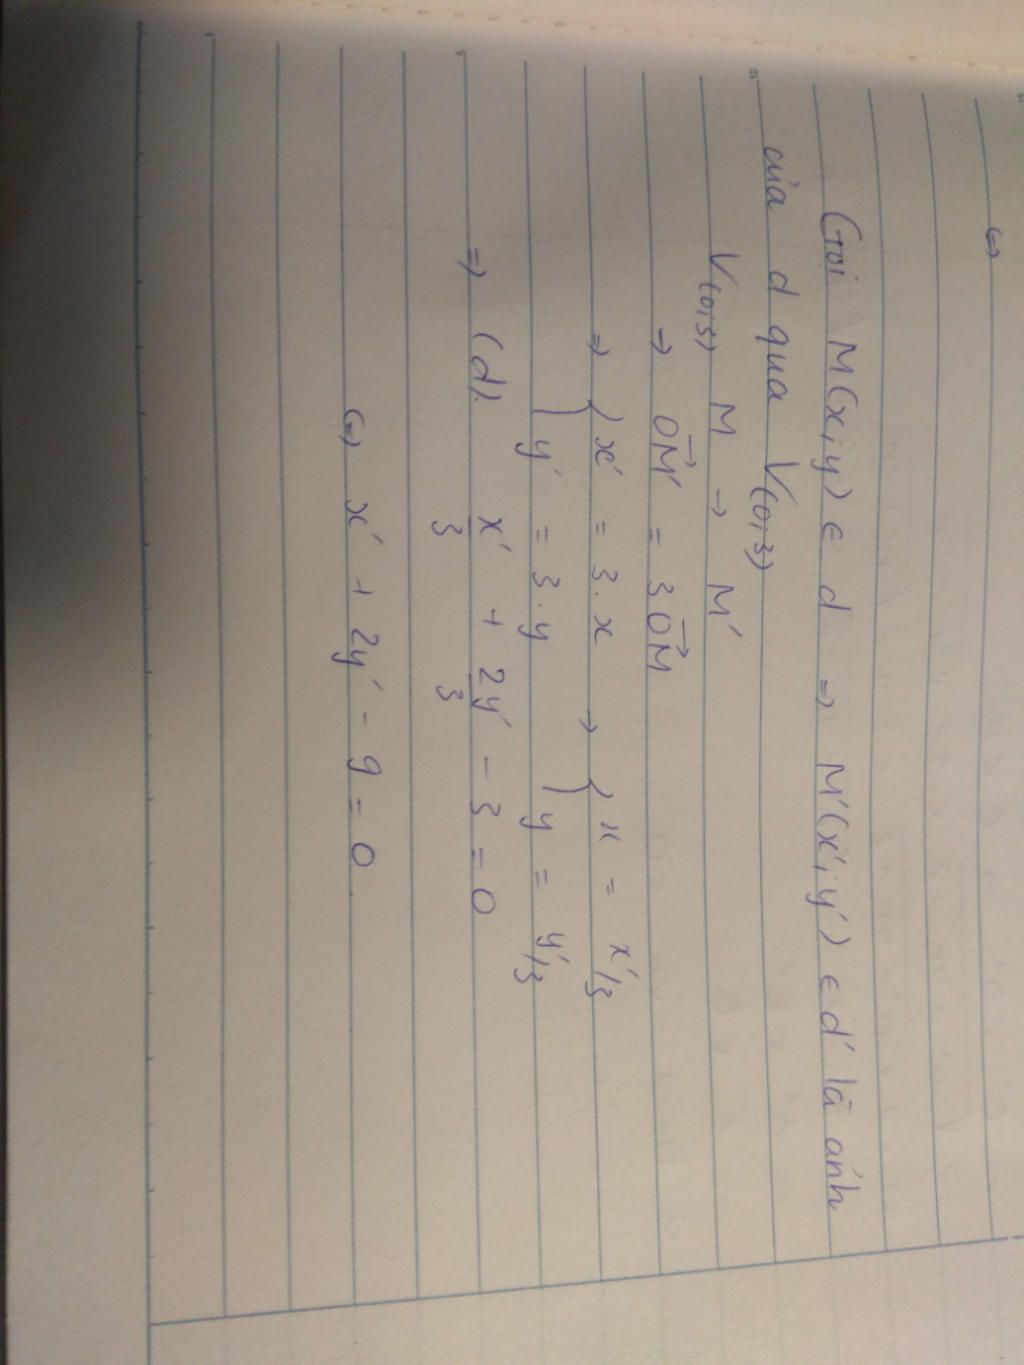 (=)
Gọi M(x;y) ∈ d => M'(x';y') ∈ d' là ảnh
của d qua V(0;3)
V(0;3) M → M'
→ OM' = 3OM
=> { x' = 3.x → { x = x'/3
y' = 3.y y = y'/3
=> (d). x'/3 + 2y'/3 - 3 = 0
(=) x' + 2y' - 9 = 0